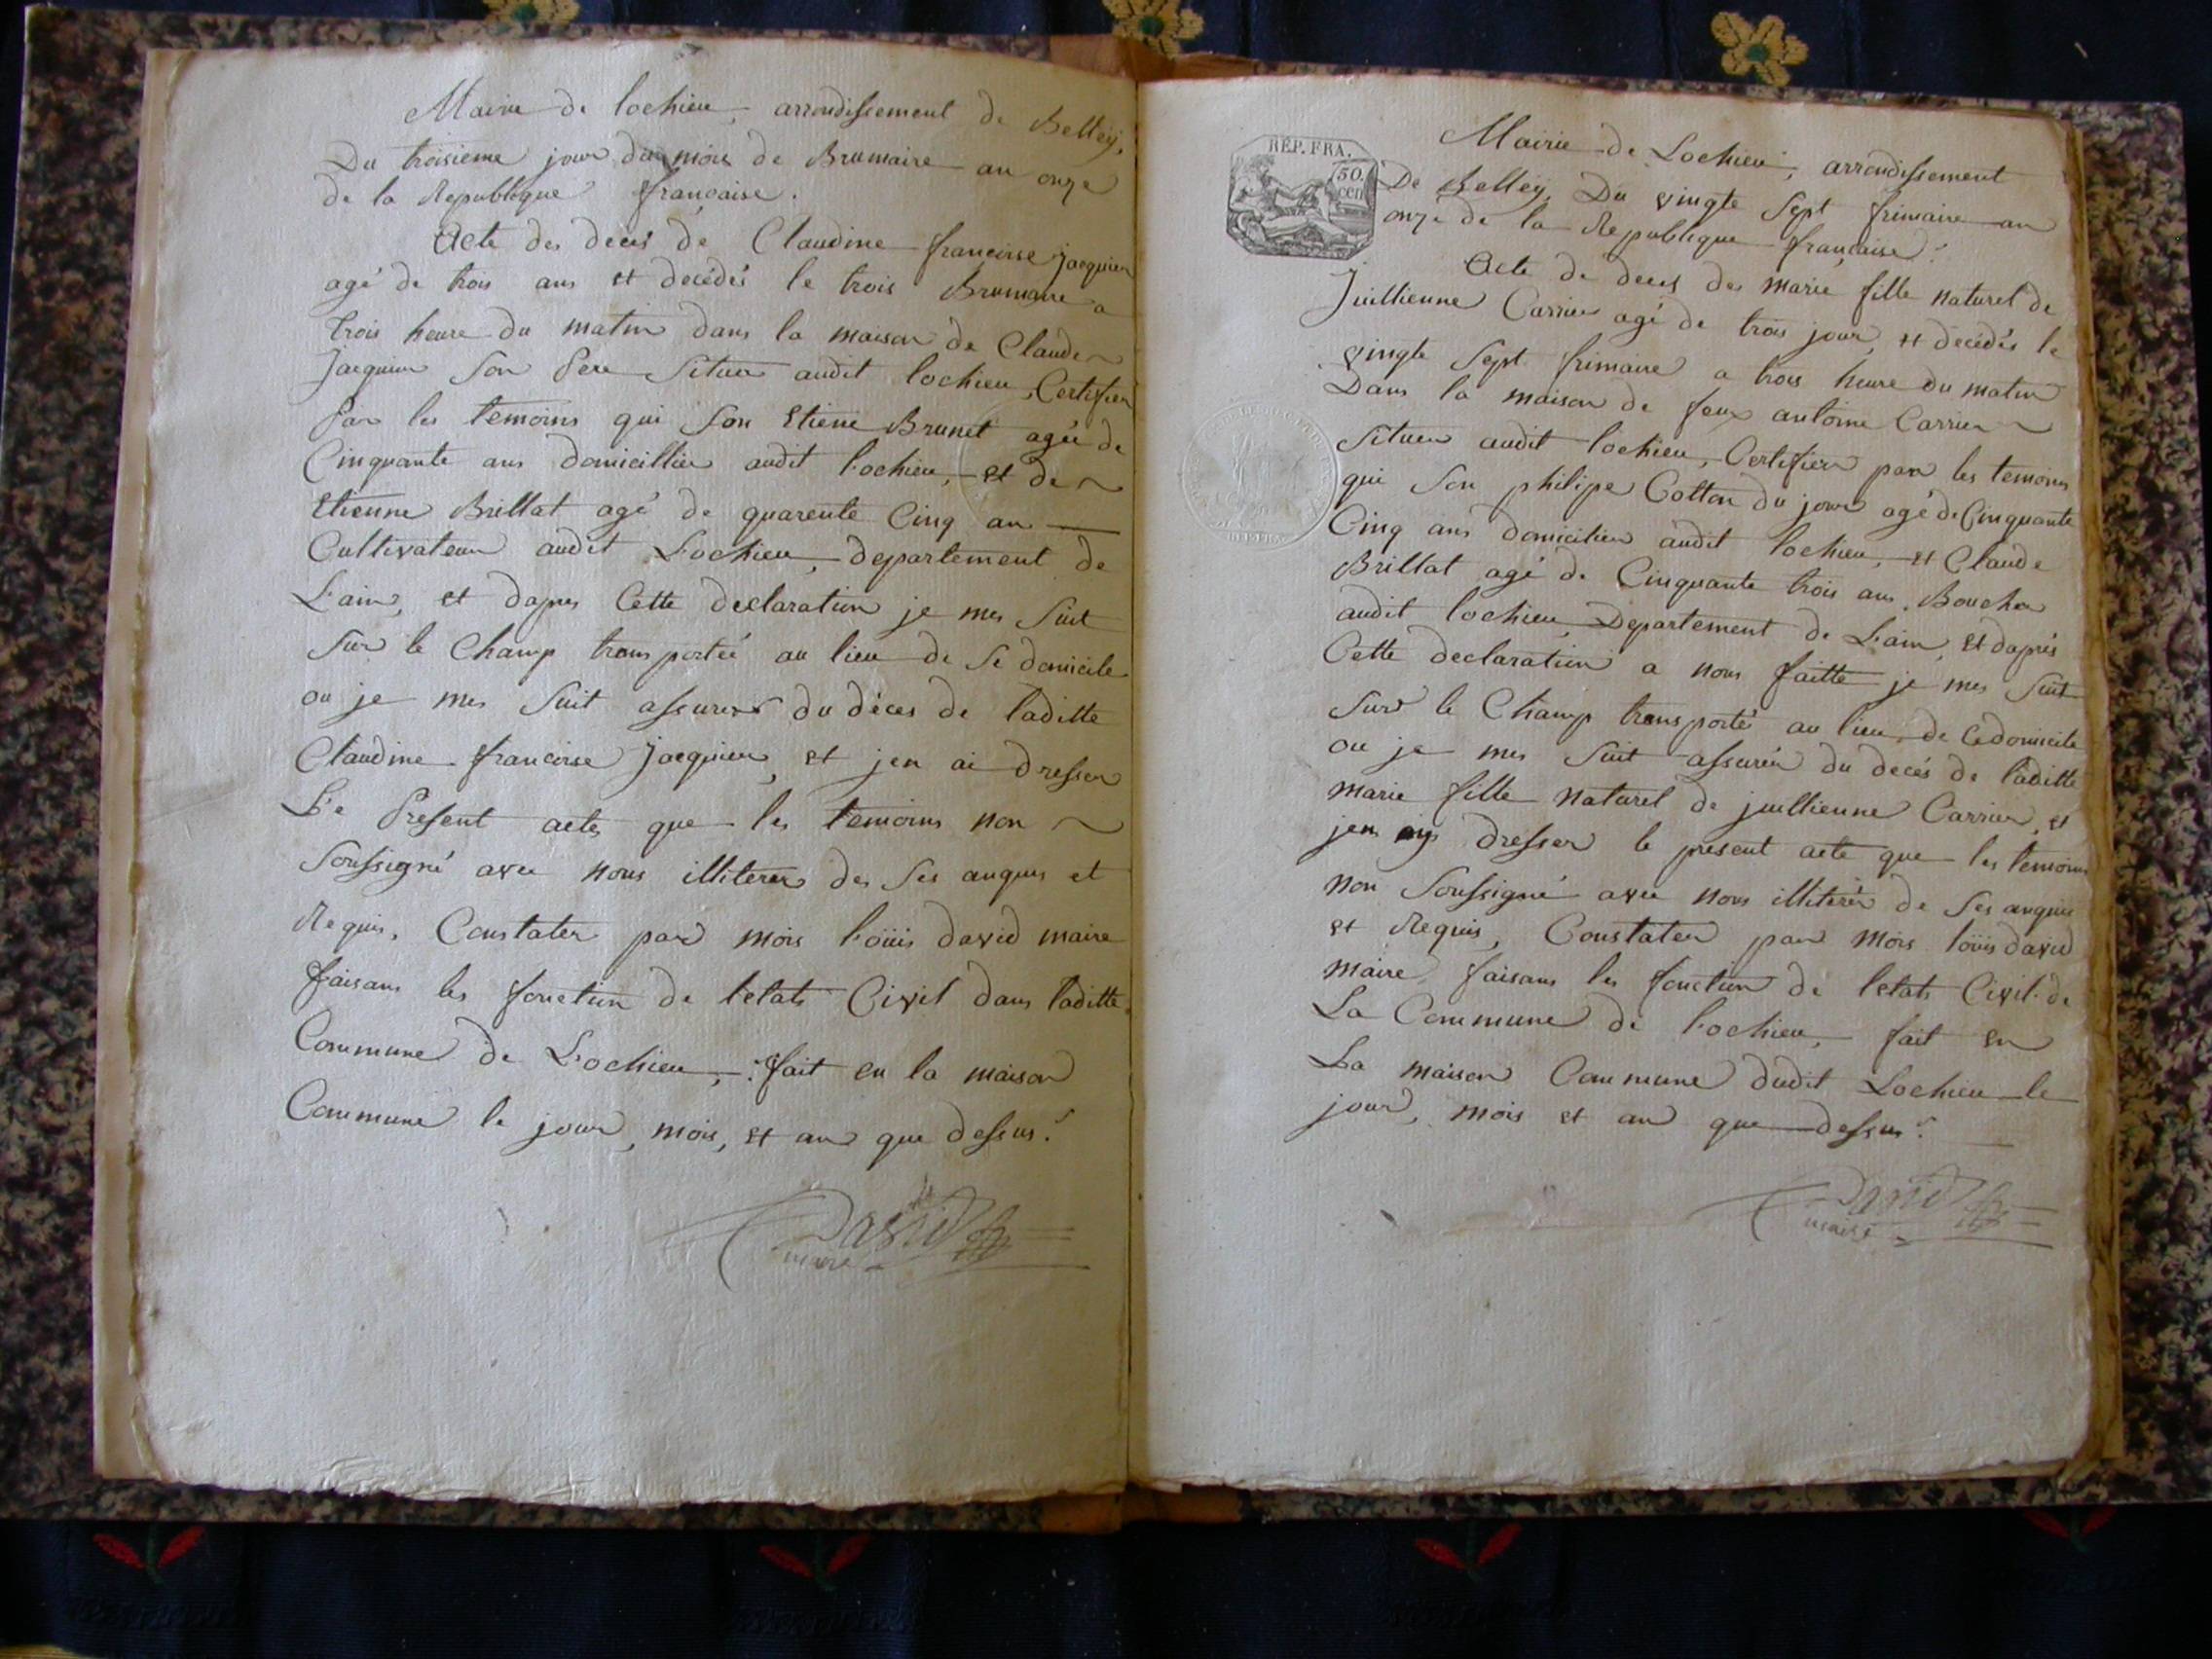 Mairie de lochieu, arrondissement de Belley,
Du troisieme jour du mois de Brumaire an onze
de la Republique francaise.
Acte des déces de Claudine francoise jacquier
agé de trois ans et decédés le trois Brumaire a
trois heure du matin dans la maison de Claude
jacquier Son Pere Situer audit lochieu, Certifier
Par les temoins qui Son Etiene Brunet agée de
Cinquante ans domicillier audit lochieu, et de
Etienne Brillat agé de quarente Cinq an
Cultivateur audit Lochieu, departement de
L'ain, et dapres Cette declaration je mes Suit
Sur le Champ transportée au lieu de Se domicile
ou je mes Suit assurer du déces de laditte
Claudine francoise jacquier, et jen ai dresser
Le Present actes que les temoins non
Soussigné avec nous illiterer de Ses anquis et
Requis, Constater par mois loüis david maire
faisans les fonction de letats Civil dans laditte
Commune de Lochieu, fait en la maison
Commune le jour, mois, et an que dessus.
David
maire
RÉP. FRA.
50.
cen
Mairie de Lochieu, arrondissement
De Belley, Du vingte Sept frimaire an
onze de la Republique francaise.
Acte de deces des marie fille naturel de
Juillienne Carrier agé de trois jour, et decédés le
vingte Sept frimaire a trois heure du matin
Dans la maison de feux antoine Carrier
Situer audit lochieu, Certifier par les temoins
qui Son philipe Cotton du jour agé de Cinquante
Cinq ans domicilier audit lochieu, et Claude
Brillat agé de Cinquante trois ans, Boucher
audit lochieu Departement de L'ain, et daprés
Cette declaration a nous faitte je mes Suit
Sur le Champ transporté au lieu de Ce domicile
ou je mes Suit assurér du decés de laditte
marie fille naturel de juillienne Carrier, et
jen ay dresser le present acte que les temoins
non Soussigné avec nous illiterér de Ses anquis
et Requis, Constater par mois loüis david
maire faisans les fonction de letats Civil de
La Commune de lochieu, fait en
La maison Commune dudit Lochieu le
jour, mois et an que dessus.
David
maire